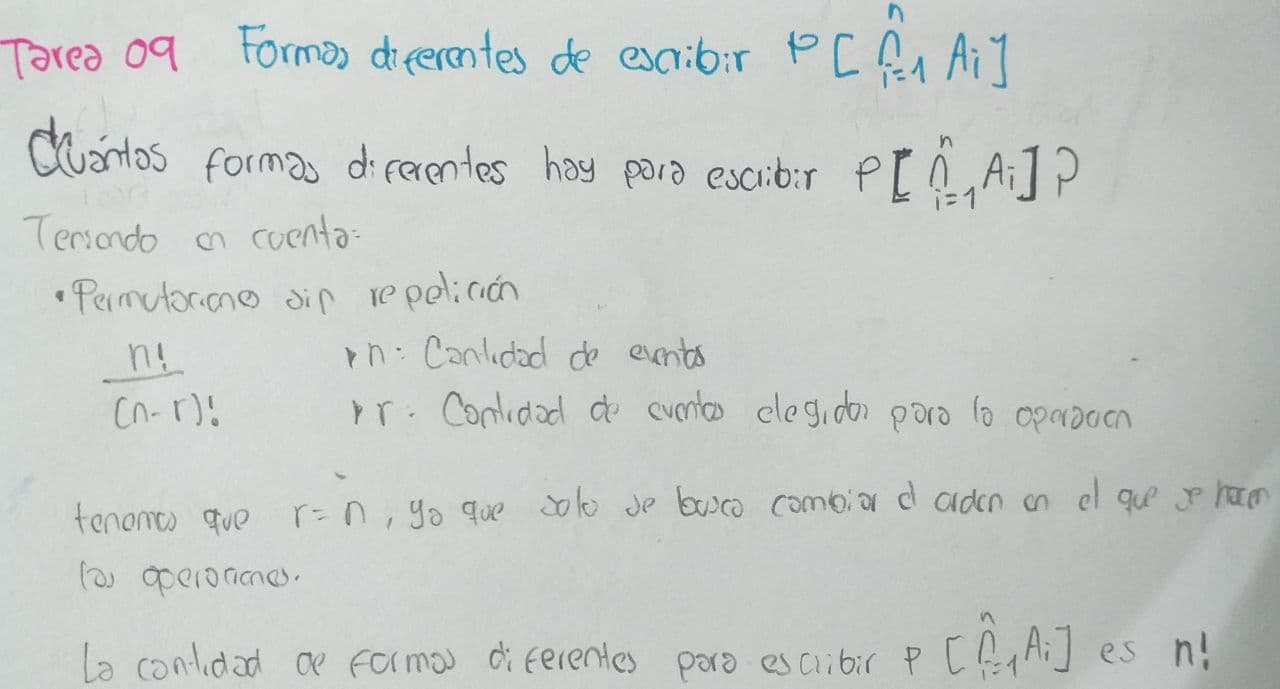 Tarea 09 Formas diferentes de escribir P[∩ⁿᵢ₌₁ Aᵢ]
Cuántas formas diferentes hay para escribir P[∩ⁿᵢ₌₁ Aᵢ]?
Teniendo en cuenta:
• Permutaciones sin repetición
n!/(n-r)!
n: Cantidad de eventos
r: Cantidad de eventos elegidos para la operación
tenemos que r=n, ya que solo se busca cambiar el orden en el que se hacen
las operaciones.
La cantidad de formas diferentes para escribir P[∩ⁿᵢ₌₁ Aᵢ] es n!